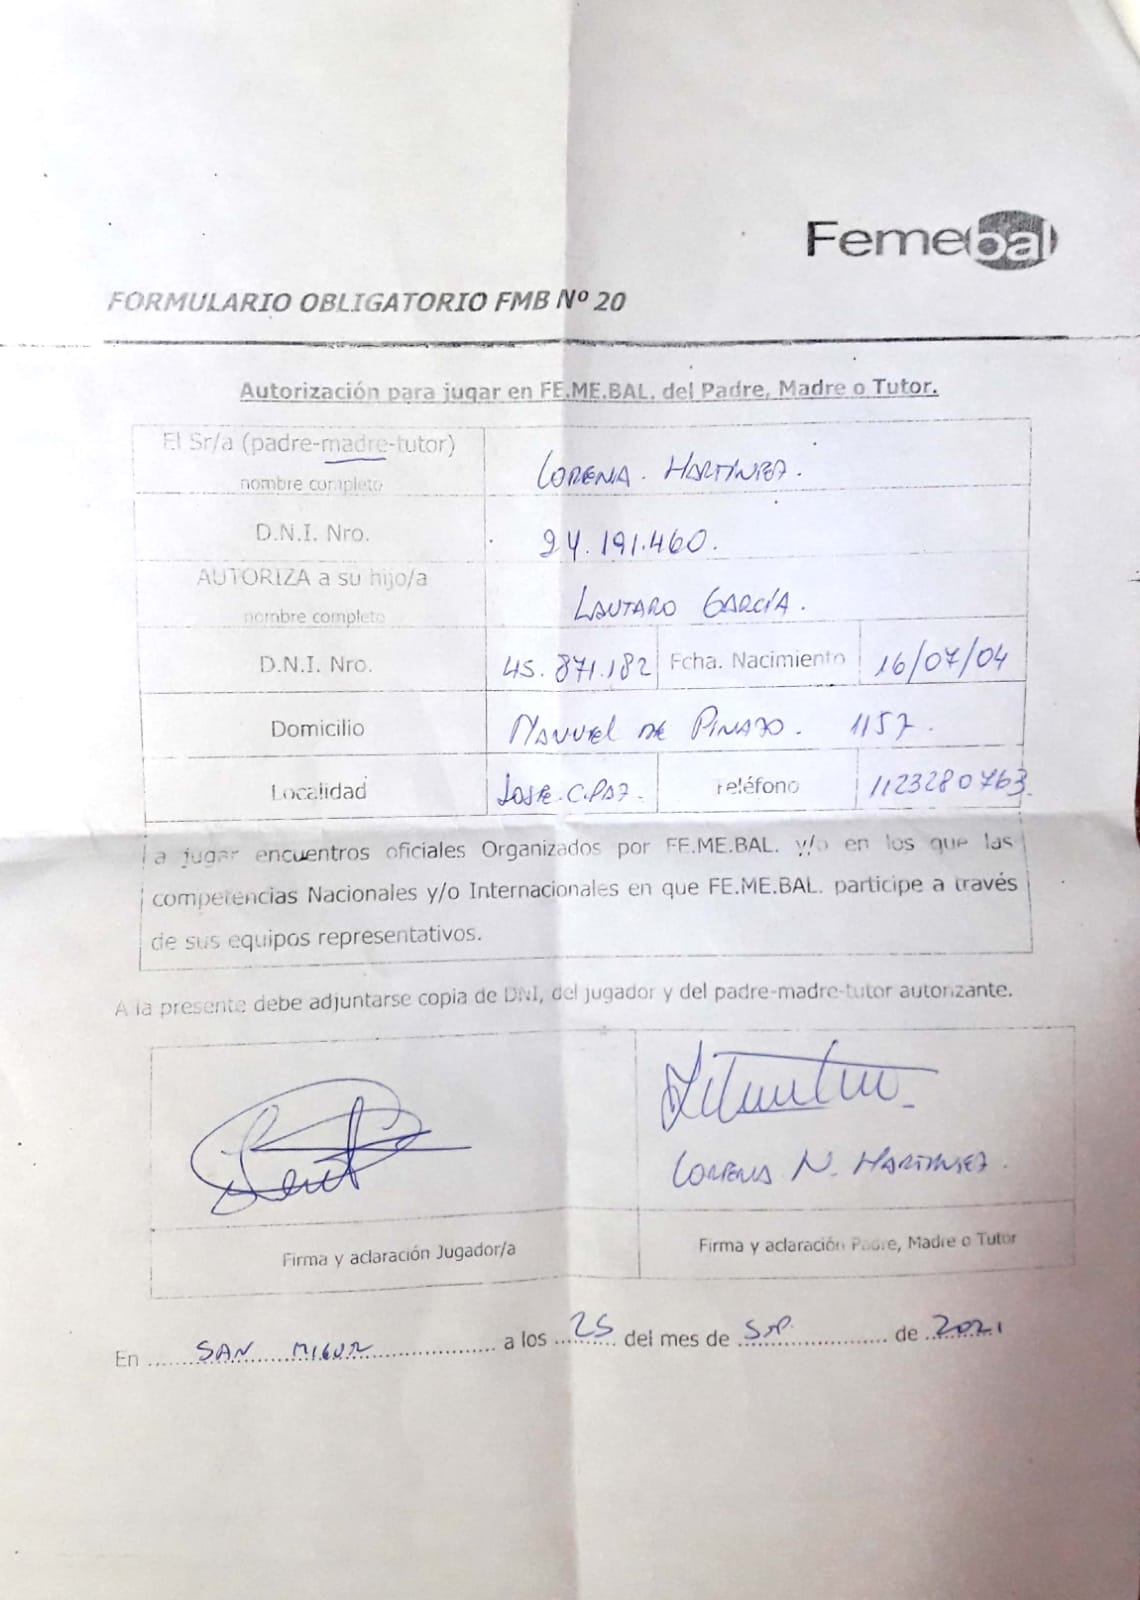 Femebal
FORMULARIO OBLIGATORIO FMB Nº 20
Autorización para jugar en FE.ME.BAL. del Padre, Madre o Tutor.
El Sr/a (padre-madre-tutor)
nombre completo
LORENA. MARTÍNEZ.
D.N.I. Nro.
24.191.460.
AUTORIZA a su hijo/a
nombre completo
LAUTARO GARCÍA.
D.N.I. Nro. 45.871.182 Fcha. Nacimiento 16/07/04
Domicilio MANUEL DE PINAZO. 1157.
Localidad JOSE.C.PAZ. Teléfono 1123280763.
a jugar encuentros oficiales Organizados por FE.ME.BAL. y/o en los que las
competencias Nacionales y/o Internacionales en que FE.ME.BAL. participe a través
de sus equipos representativos.
A la presente debe adjuntarse copia de DNI, del jugador y del padre-madre-tutor autorizante.
LORENA N. MARTINEZ.
Firma y aclaración Jugador/a
Firma y aclaración Padre, Madre o Tutor
En SAN MIGUEL a los 25 del mes de SEP. de 2021